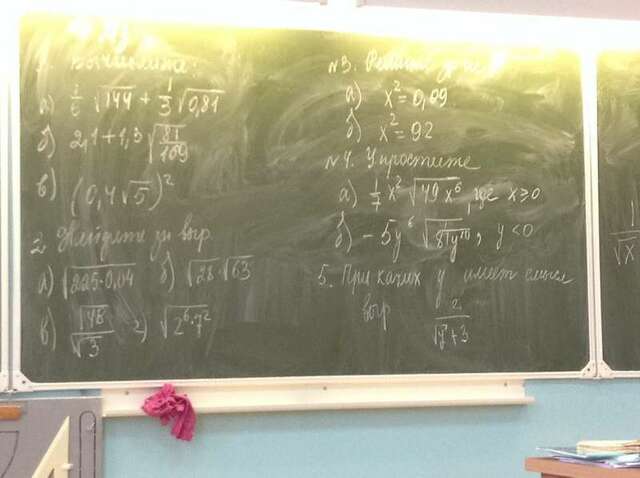 1. Вычислите:
а) 1/6 √144 + 1/3 √0,81
б) 2,1+1,3 √81/169
в) (0,4√5)²
2 Найдите зн. выр.
а) √225·0,04 б) √28·√63
в) √48/√3 г) √2⁶·7²
№3. Решите
а) x²=0,09
б) x²=92
№4. Упростите
а) 1/7 x² √49x⁶, где x≥0
б) -5y⁶ √, y<0
5. При каких y имеет смысл
выр 2/√y+3
1
√x